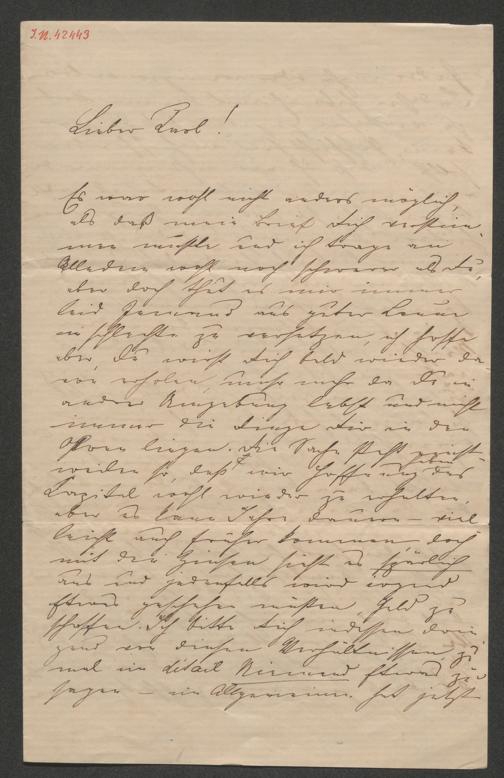 I.N. 42443
Lieber Karl!
Es war wohl nicht anders möglich,
als daß mein Brief Dich verstim-
men mußte und ich trage an
Alledem wohl noch schwerer als Du,
aber doch thut es mir immer
leid Jemand aus guter Laune
in schlechte zu versetzen, ich hoffe
aber, Du wirst Dich bald wieder da
von erholen, mehr da Du in
andrer Umgebung lebst und nicht
immer die Dinge Dir in den
Ohren liegen. Die Sache steht
weilen so, daß wir Hoffnung haben das
Kapital wohl wieder zu erhalten,
aber es kann Jahre dauern – viel
leicht auch früher kommen doch
mit den Zinsen sieht es spärlich
aus und jedenfalls wird irgend
Etwas geschehen müssen, Geld zu
schaffen. Ich bitte Dich indessen drin
gend von diesen Verhältnissen, zu
mal im détail Niemand Etwas zu
sagen – im Allgemeinen hat jetzt